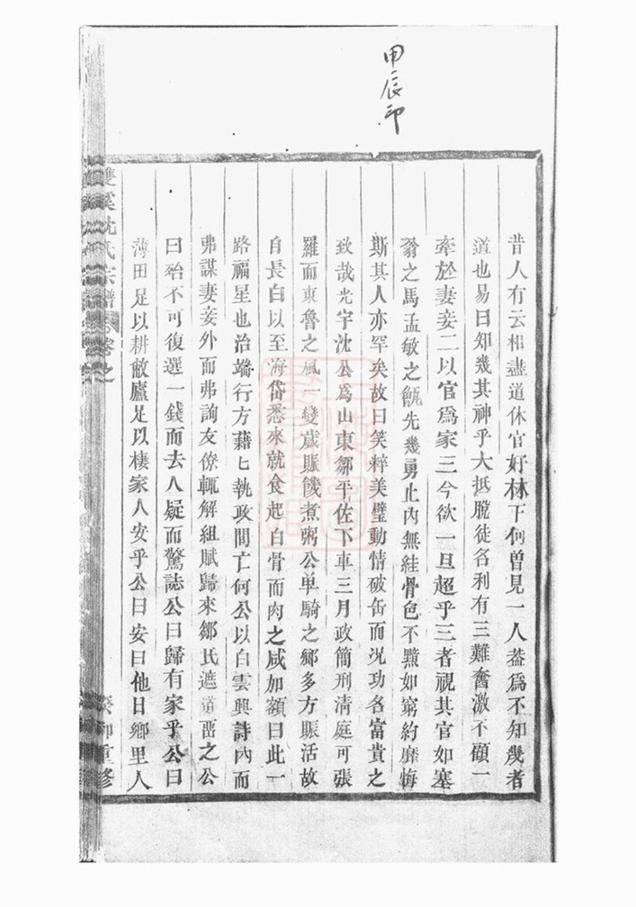 甲辰卯
昔人有云相盡道休官好林下何曾見一人葢爲不知幾者
道也易曰知幾其神乎大抵脫徒名利有三難奮激不顧一
牽於妻妾二以官爲家三今欲一旦超乎三者視其官如塞
翁之馬孟敏之甑先幾勇止內無絓骨色不黯如窮約靡悔
斯其人亦罕矣故曰笑粹美璧動情破缶而況功各富貴之
致哉光宇沈公爲山東鄒平佐下車三月政簡刑清庭可張
羅而東魯之風一變歲賑饑煮粥公单騎之鄉多方賑活故
自長白以至海岱悉來就食起白骨而肉之咸加額曰此一
路福星也治端行方藉匕執政間亡何公以白雲興詩內而
弗謀妻妾外而弗詢友僚輒解組賦歸來鄒氏遮道畱之公
曰殆不可復選一錢而去人疑而驚誌公曰歸有家乎公曰
薄田足以耕敝廬足以棲家人安乎公曰安曰他日鄉里人
雙溪沈氏宗譜 卷之
重修